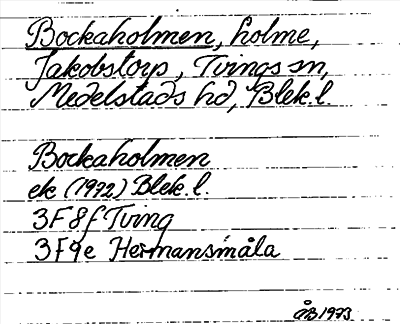 Bockaholmen, holme,
Jakobstorp, Tvings sn,
Medelstads hd, Blek.l.
Bockaholmen
ek (1972) Blek.l.
3F8f Tving
3F9e Hermansmåla
ÅB 1973